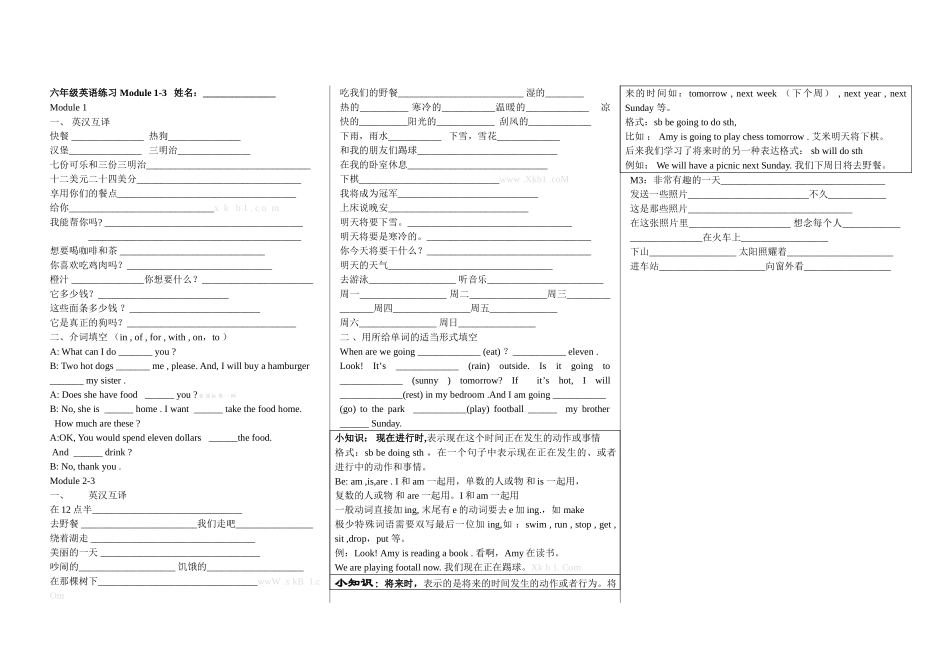 六年级英语练习 Module 1-3   姓名：_______________
Module 1
一、 英汉互译
快餐 _____________  热狗_______________
汉堡_______________   三明治_______________
七份可乐和三份三明治__________________________________
十二美元二十四美分__________________________________
享用你们的餐点_____________________________________
给你______________________________x k b 1 . c o m
我能帮你吗? _________________________________________
____________________________________________
想要喝咖啡和茶 ______________________________________
你喜欢吃鸡肉吗？____________________________________
橙汁 _______________你想要什么？_______________________
它多少钱？___________________________
这些面条多少钱 ? ___________________________
它是真正的狗吗？___________________________________
二、介词填空 （in , of , for , with , on，to ）
A: What can I do _______ you ?
B: Two hot dogs _______ me , please. And, I will buy a hamburger
_______ my sister .
A: Does she have food   ______ you ?
B: No, she is  ______ home . I want  ______ take the food home.
How much are these ?
A:OK, You would spend eleven dollars   ______the food.
And  ______ drink ?
B: No, thank you .
Module 2-3
一、      英汉互译
在 12 点半_______________________________
去野餐 ________________________我们走吧________________
绕着湖走 __________________________________
美丽的一天 _________________________________
吵闹的____________________ 饥饿的____________________
在那棵树下_________________________________wwW .x kB 1.c
Om
吃我们的野餐__________________________ 湿的________
热的__________ 寒冷的___________温暖的___________ 凉
快的___________阳光的____________ 刮风的____________
下雨，雨水___________  下雪，雪花____________
和我的朋友们踢球_____________________________
在我的卧室休息_____________________________
下棋_____________________________www .Xkb1 .coM
我将成为冠军__________________________________
上床说晚安__________________________________
明天将要下雪。__________________________________
明天将要是寒冷的。__________________________________
你今天将要干什么？__________________________________
明天的天气__________________________________
去游泳__________________ 听音乐__________________
周一__________________ 周二________________周三_________
_______周四________________周五______________
周六________________ 周日________________
二 、用所给单词的适当形式填空
When are we going _____________ (eat) ？___________ eleven .
Look! It’s _____________ (rain) outside. Is it going to
_____________ (sunny ) tomorrow? If it’s hot, I will
_____________(rest) in my bedroom .And I am going __________
(go) to the park ___________(play) football ______ my brother
______ Sunday.
小知识： 现在进行时,表示现在这个时间正在发生的动作或事情
格式：sb be doing sth 。在一个句子中表示现在正在发生的、或者
进行中的动作和事情。
Be: am ,is,are . I 和 am 一起用，单数的人或物 和 is 一起用，
复数的人或物 和 are 一起用。I 和 am 一起用
一般动词直接加 ing, 末尾有 e 的动词要去 e 加 ing.，如 make
极少特殊词语需要双写最后一位加 ing,如 ：swim , run , stop , get ,
sit ,drop，put 等。
例：Look! Amy is reading a book . 看啊，Amy 在读书。
We are playing footall now. 我们现在正在踢球。Xk b 1. Com
小知识：将来时，表示的是将来的时间发生的动作或者行为。将
来的时间如：tomorrow , next week （下个周）, next year , next
Sunday 等。
格式：sb be going to do sth,
比如 ： Amy is going to play chess tomorrow . 艾米明天将下棋。
后来我们学习了将来时的另一种表达格式： sb will do sth
例如： We will have a picnic next Sunday. 我们下周日将去野餐。
M3：非常有趣的一天__________________________________
发送一些照片_________________________不久____________
这是那些照片__________________________________
在这张照片里_____________________ 想念每个人____________
_______________在火车上__________________
下山__________________ 太阳照耀着______________________
进车站______________________向窗外看__________________